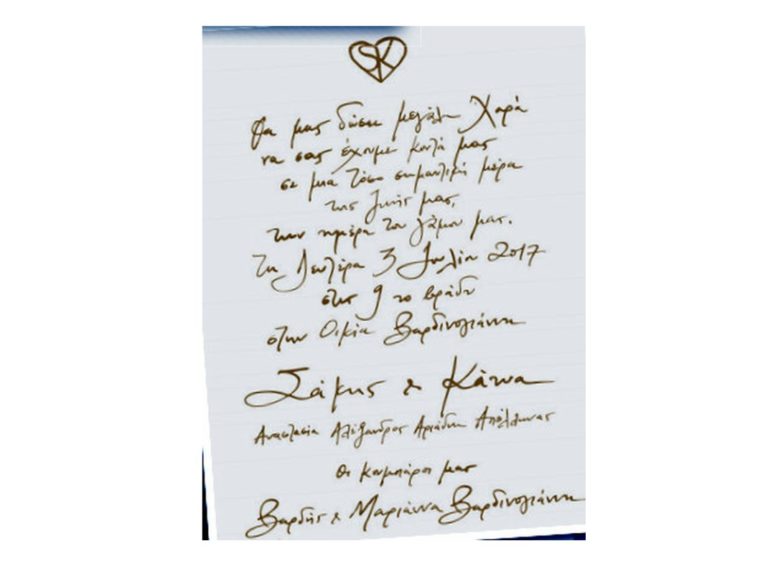 SK
Θα μας δώσει μεγάλη Χαρά
να σας έχουμε κοντά μας
σε μια τόσο σημαντική μέρα
της ζωής μας,
την ημέρα του γάμου μας.
Τη Δευτέρα 3 Ιουλίου 2017
στις 9 το βράδυ
στην Οικία Βαρδινογιάννη
Σάκης & Κάτια
Αναστασία Αλέξανδρος Αριάδνη Απόλλωνας
Οι κουμπάροι μας
Βαρδής & Μαριάννα Βαρδινογιάννη